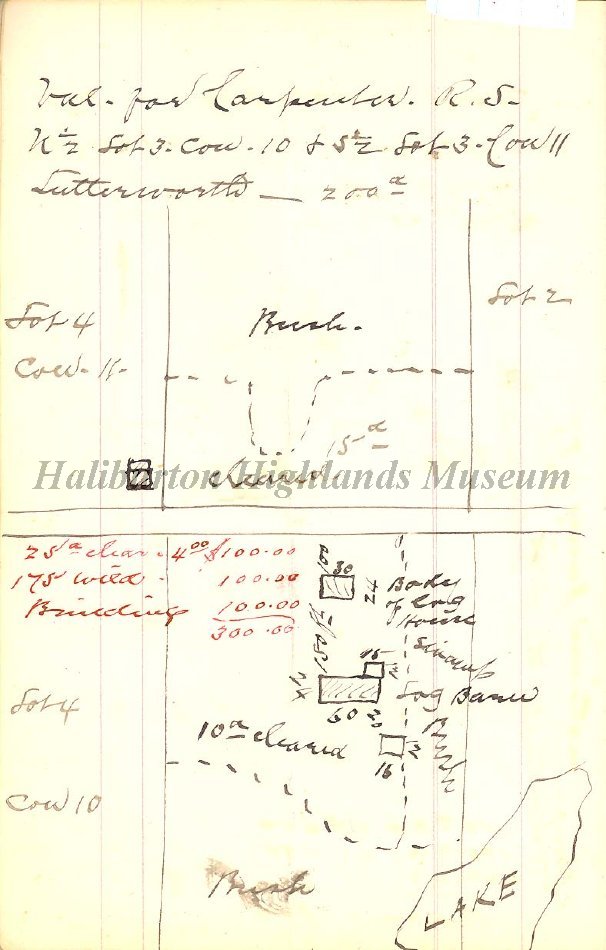 Val. for Carpenter. R. S.
N½ Lot 3. Con. 10 & S½ Lot 3. Con 11
Lutterworth — 200a
Lot 2
Lot 4
Bush.
Con. 11.
15a
cleared.
Haliburton Highlands Museum
25a clear. 4.00 $100.00
175 wild. 100.00
Building 100.00
300.00
100
30
24
Body
of Log
House
150 ft
Swamp
15
12
Log Barn
60
20
Lot 4
10a cleared
Bush
12
16
Con 10
Bush
LAKE